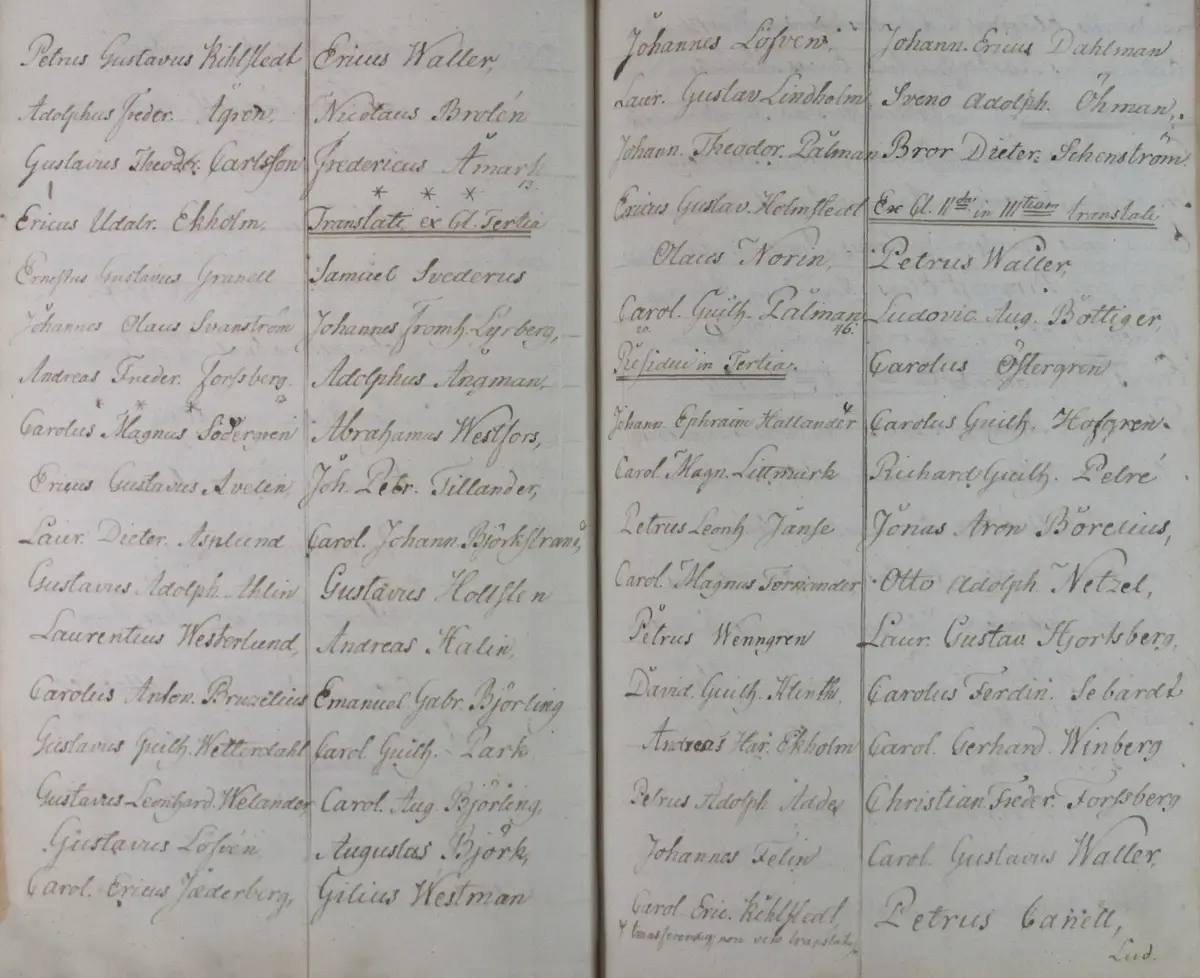 Petrus Gustavus Kihlstedt
Adolphus Freder. Ågren,
Gustavus Theodor. Carlsson
Ericus Udalr. Ekholm,
Ernestus Gustavus Granell
Johannes Olaus Svanström
Andreas Frieder. Forssberg.
13
* * *
Carolus Magnus Södergren
Ericus Gustavus Avelin,
Laur. Dieter. Asplund
Gustavus Adolph. Ahlin
Laurentius Westerlund,
Carolus Anton. Bruzelius
Gustavus Guilh. Wetterdahl
Gustavus Leonhard. Welander
Gustavus Löfvén
Carol. Ericus Jæderberg,
Ericus Waller,
Nicolaus Brolén
Fredericus Åmark
13.
* * *
Translati ex Cl. Tertia
Samuel Svederus
Johannes Fromh. Lyrberg,
Adolphus Ångman,
Abrahamus Westfors,
Joh. Petr. Tillander,
Carol. Johann. Björkstrand,
Gustavus Hollsten
Andreas Halin,
Emanuel Gabr. Björling
Carol Guilh. Park
Carol. Aug. Björling,
Augustus Björk,
Gilius Westman
Johannes Löfvén,
Laur. Gustav Lindholm
Johann. Theodor. Pålman
Ericus Gustav. Holmstedt
Olaus Norin,
Carol. Guilh. Pålman
20. 46.
Residui in Tertia.
Johann Ephraim Hallander
Carol. Magn. Littmark
Petrus Leonh. Janse
Carol. Magnus Törnander
Petrus Wenngren
David. Guilh. Klinth.
Andreas Har. Ekholm
Petrus Adolph Adde,
Johannes Felin
Carol. Eric. Kihlstedt
transferendi, non vero translati
Johann. Ericus Dahlman
Sveno Adolph. Öhman,
Bror Dieter. Schenström.
Ex Cl. IIda in IIItiam translati
Petrus Waller,
Ludovic. Aug. Böttiger,
Carolus Östergren
Carolus Guilh. Hofgren
Richard Guilh. Petré
Jonas Aron Borelius,
Otto Adolph. Netzel,
Laur. Gustav. Hjortsberg,
Carolus Ferdin. Sebardt
Carol. Gerhard. Winberg
Christian Freder. Forssberg
Carol. Gustavus Waller,
Petrus Canell,
Lud.